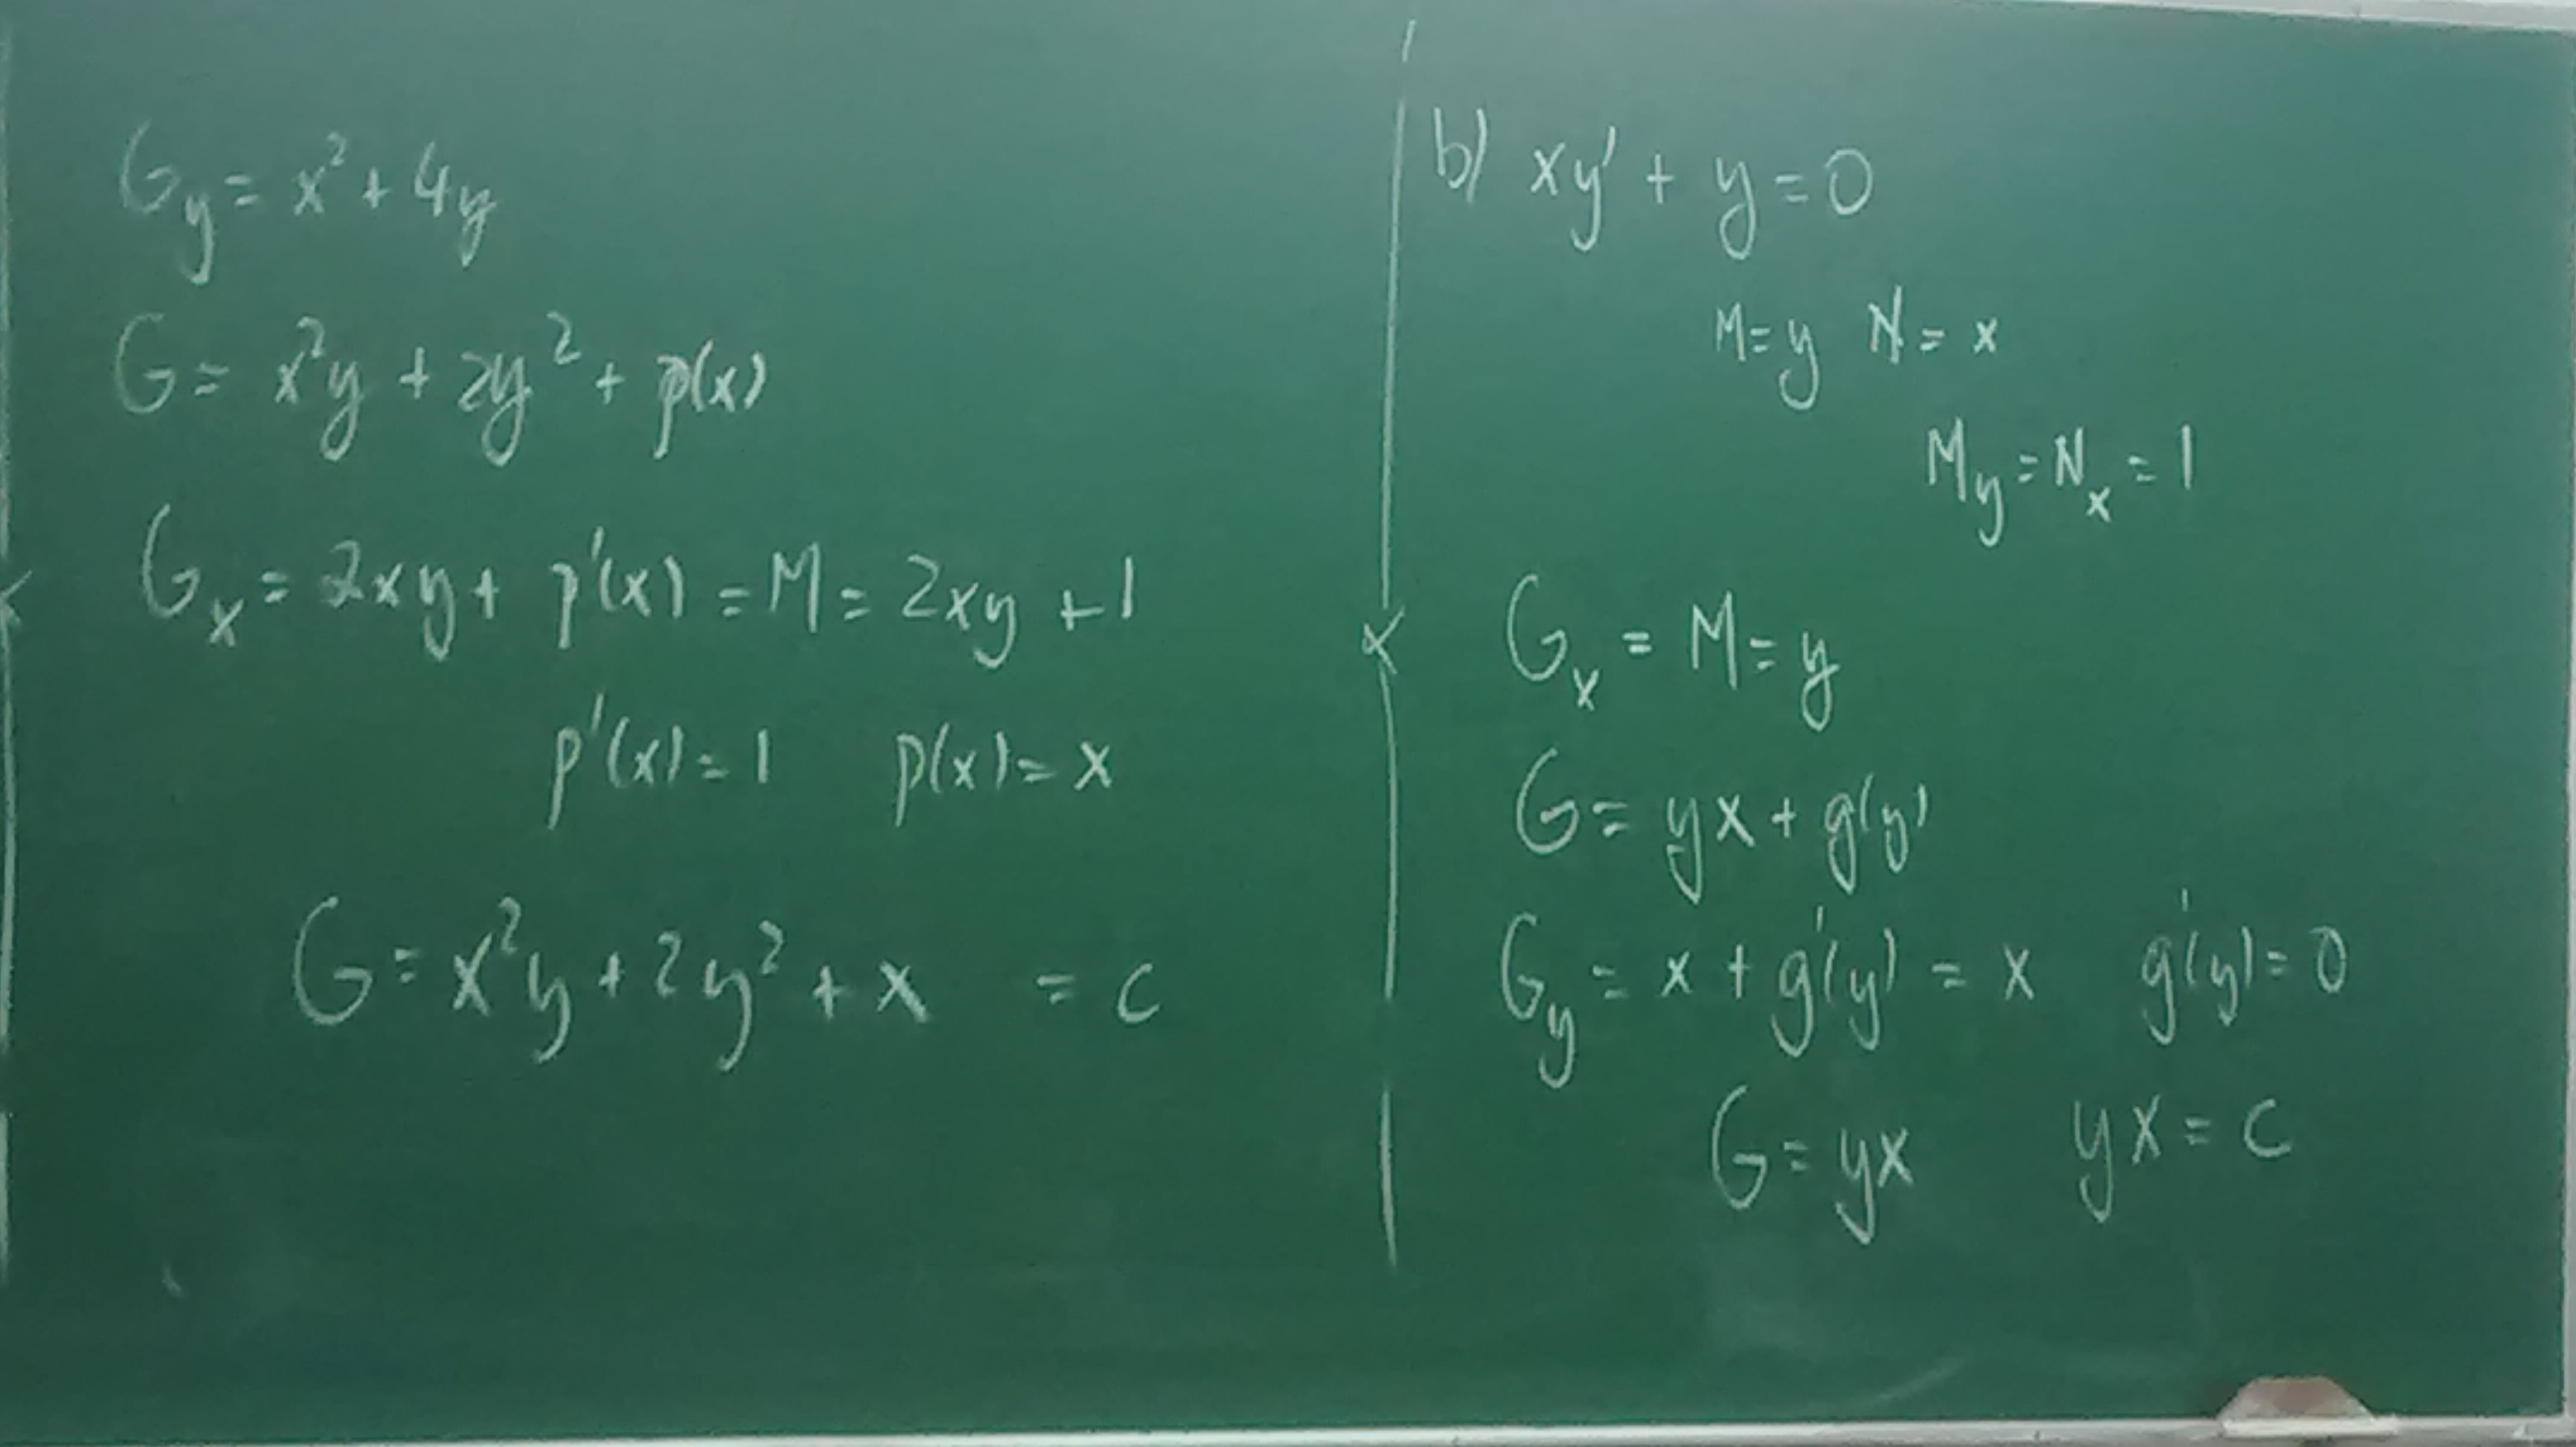 G_y = x² + 4y
G = x²y + 2y² + p(x)
G_x = 2xy + p'(x) = M = 2xy + 1
p'(x) = 1 p(x) = x
G = x²y + 2y² + x = c
b) xy' + y = 0
M = y N = x
M_y = N_x = 1
G_x = M = y
G = yx + g(y)
G_y = x + g'(y) = x g'(y) = 0
G = yx yx = c